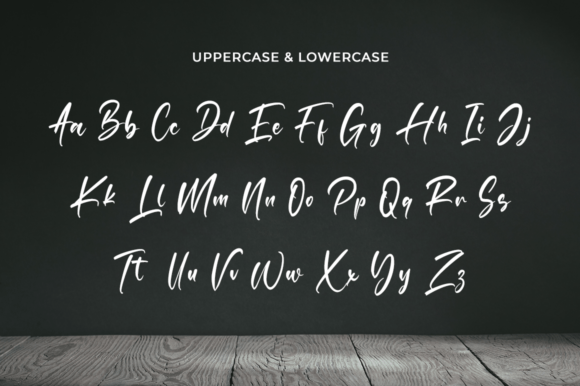 UPPERCASE & LOWERCASE
Aa Bb Cc Dd Ee Ff Gg Hh Ii Jj
Kk Ll Mm Nn Oo Pp Qq Rr Ss
Tt Uu Vv Ww Xx Yy Zz